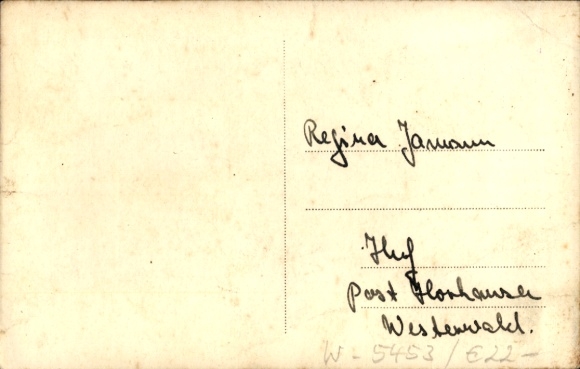 Regina Jamann
Huf
Post Horhausen
Westerwald.
W-5453 / €22-